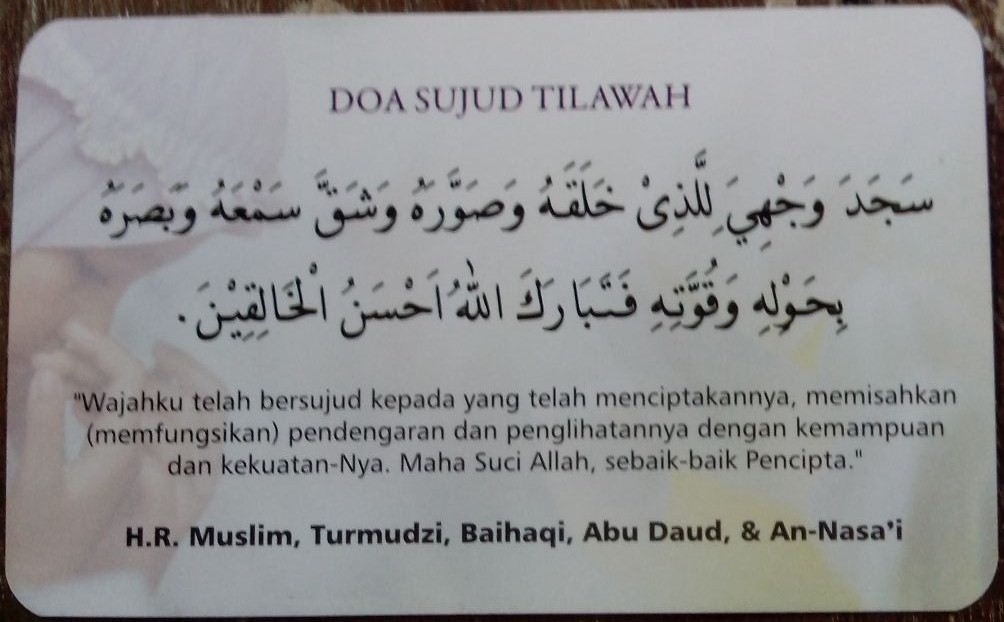 DOA SUJUD TILAWAH
سَجَدَ وَجْهِيَ لِلَّذِىْ خَلَقَهُ وَصَوَّرَهُ وَشَقَّ سَمْعَهُ وَبَصَرَهُ
بِحَوْلِهِ وَقُوَّتِهِ فَتَبَارَكَ اللهُ اَحْسَنُ الْخَالِقِيْنَ.
"Wajahku telah bersujud kepada yang telah menciptakannya, memisahkan
(memfungsikan) pendengaran dan penglihatannya dengan kemampuan
dan kekuatan-Nya. Maha Suci Allah, sebaik-baik Pencipta."
H.R. Muslim, Turmudzi, Baihaqi, Abu Daud, & An-Nasa'i